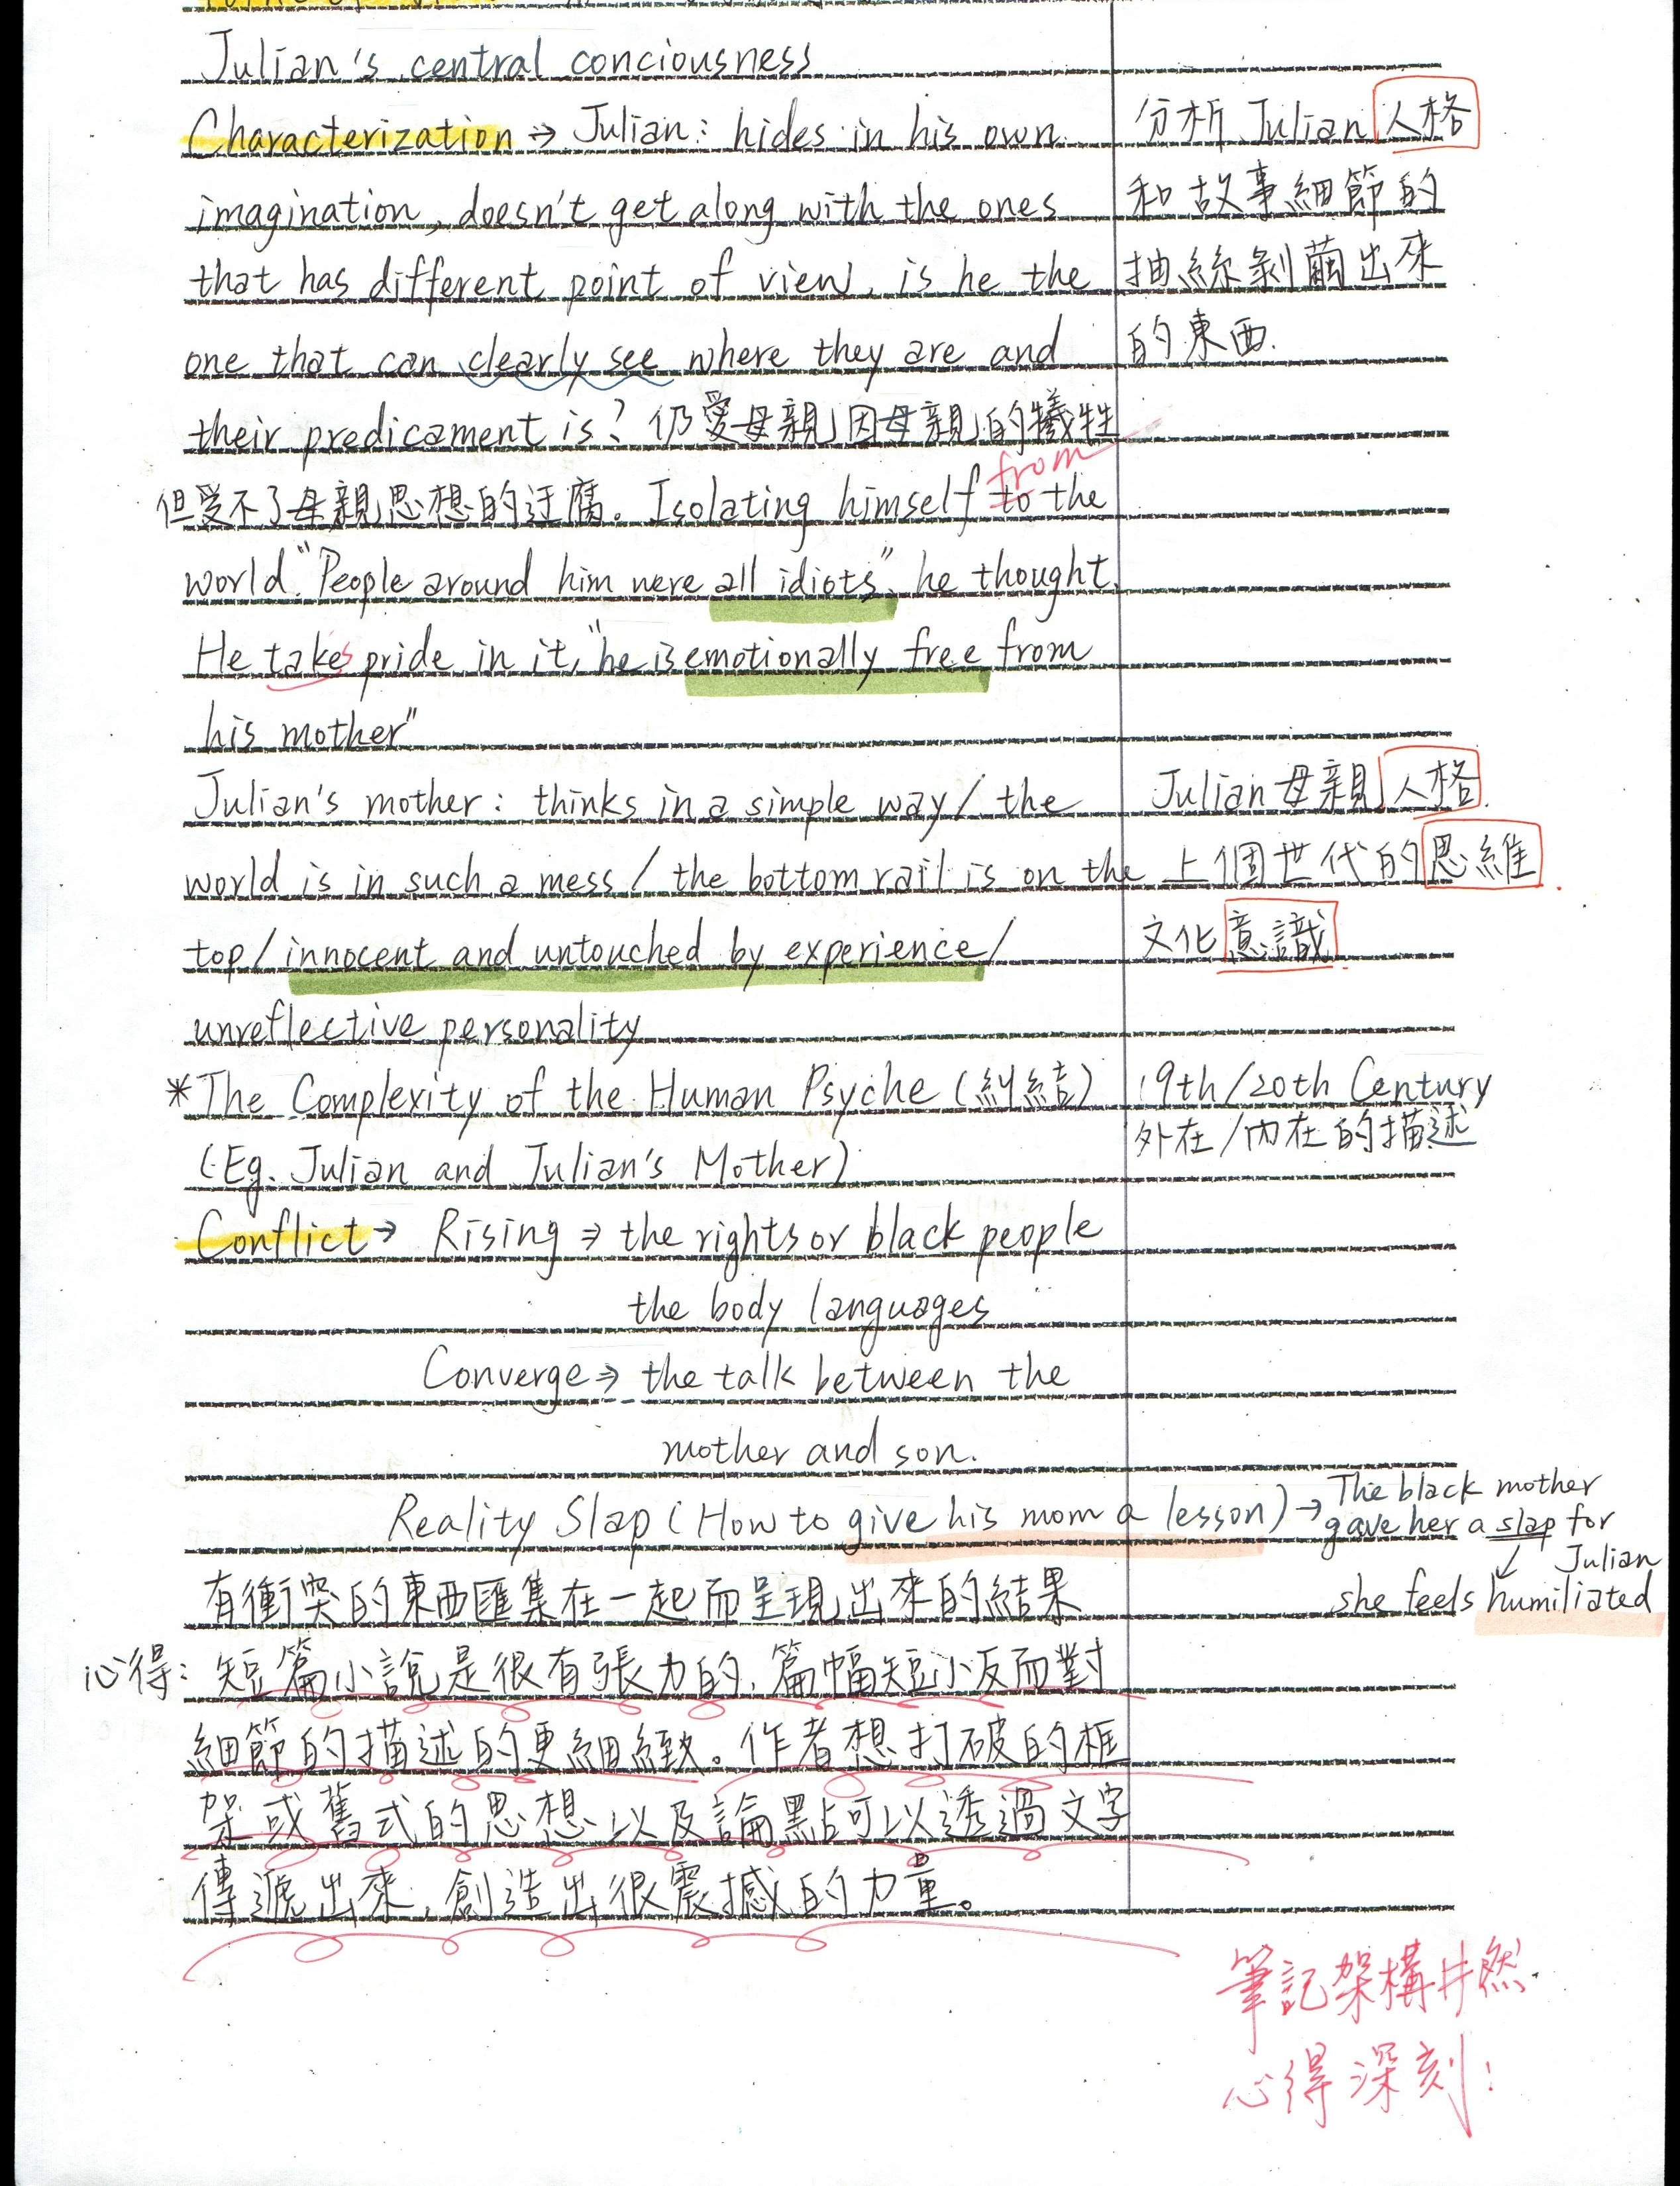 Julian's central conciousness
Characterization → Julian: hides in his own
imagination, doesn't get along with the ones
that has different point of view, is he the
one that can clearly see where they are and
their predicament is? 仍愛母親因母親的犧牲
但受不了母親思想的迂腐。Isolating himself to the
from
world. "People around him were all idiots", he thought.
He takes pride in it, "he is emotionally free from
his mother"
Julian's mother: thinks in a simple way / the
world is in such a mess / the bottom rail is on the
top / innocent and untouched by experience /
unreflective personality
*The Complexity of the Human Psyche (糾結)
(Eg. Julian and Julian's Mother)
Conflict → Rising ⇒ the rights or black people
the body languages
Converge ⇒ the talk between the
mother and son.
Reality Slap (How to give his mom a lesson) →
有衝突的東西匯集在一起而呈現出來的結果
心得: 短篇小說是很有張力的, 篇幅短小反而對
細節的描述的更細緻。作者想打破的框
架或舊式的思想以及論點可以透過文字
傳遞出來, 創造出很震撼的力量。
分析 Julian 人格
和故事細節的
抽絲剝繭出來
的東西.
Julian 母親人格
上個世代的思維
文化意識
19th/20th Century
外在/內在的描述
The black mother
gave her a slap for
↓ Julian
she feels humiliated
筆記架構井然
心得深刻!